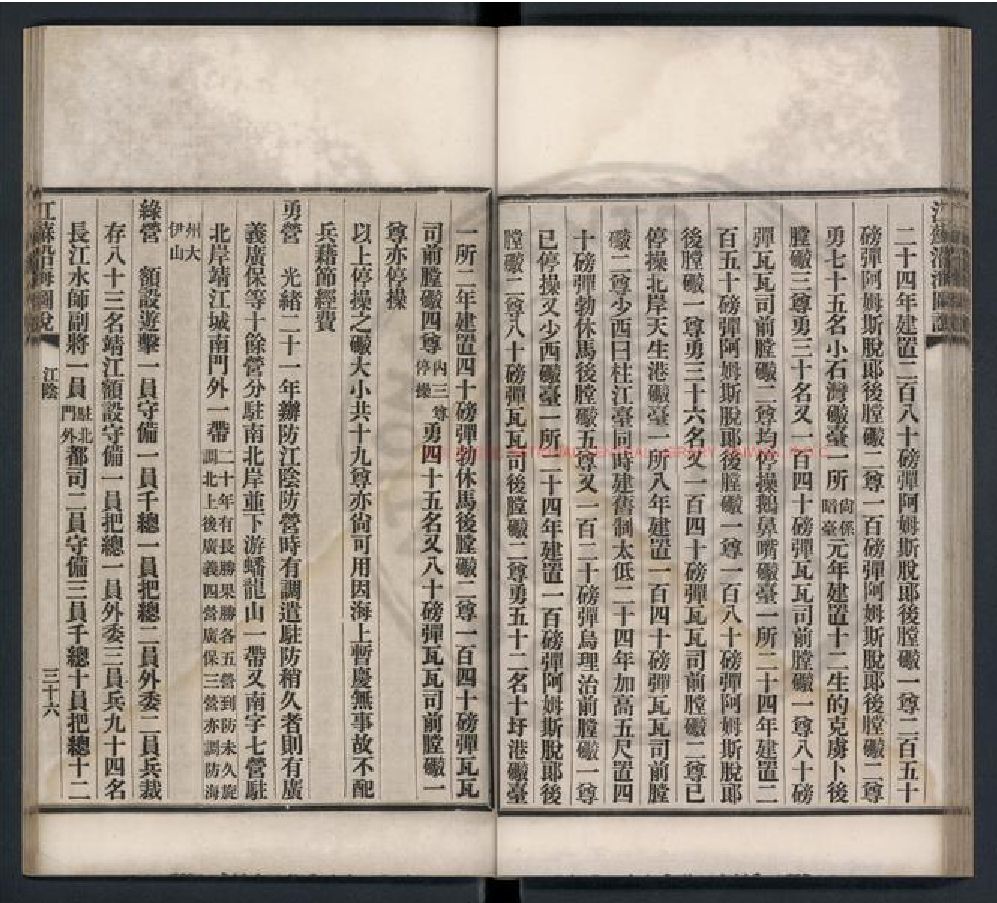 二十四年建置二百八十磅彈阿姆斯脫郎後膛礮一尊二百五十
磅彈阿姆斯脫郎後膛礮二尊一百磅彈阿姆斯脫郎後膛礮二尊
勇七十五名小石灣礮臺一所尚係暗臺元年建置十二生的克虜卜後
膛礮三尊勇三十名又一百四十磅彈瓦瓦司前膛礮一尊八十磅
彈瓦瓦司前膛礮二尊均停操鵝鼻嘴礮臺一所二十四年建置二
百五十磅彈阿姆斯脫郎後膛礮一尊一百八十磅彈阿姆斯脫郎
後膛礮一尊勇三十六名又一百四十磅彈瓦瓦司前膛礮二尊已
停操北岸天生港礮臺一所八年建置一百四十磅彈瓦瓦司前膛
礮二尊少西曰柱江臺同時建舊制太低二十四年加高五尺置四
十磅彈勃休馬後膛礮五尊又一百二十磅彈烏理治前膛礮一尊
已停操又少西礮臺一所二十四年建置一百磅彈阿姆斯脫郎後
膛礮二尊八十磅彈瓦瓦司後膛礮二尊勇五十二名十圩港礮臺
一所二年建置四十磅彈勃休馬後膛礮二尊一百四十磅彈瓦瓦
司前膛礮四尊內三尊停操勇四十五名又八十磅彈瓦瓦司前膛礮一
尊亦停操
以上停操之礮大小共十九尊亦尚可用因海上暫慶無事故不配
兵藉節經費
勇營 光緒二十一年辦防江陰防營時有調遣駐防稍久者則有廣
義廣保等十餘營分駐南北岸並下游蟠龍山一帶又南字七營駐
北岸靖江城南門外一帶二十年有長勝果勝各五營到防未久旋調北上後廣義四營廣保三營亦調防海
州大伊山
綠營 額設遊擊一員守備一員千總一員把總二員外委二員兵裁
存八十三名靖江額設守備一員把總一員外委三員兵九十四名
長江水師副將一員駐北門外都司二員守備三員千總十員把總十二
江蘇沿海圖說 江陰 三十六